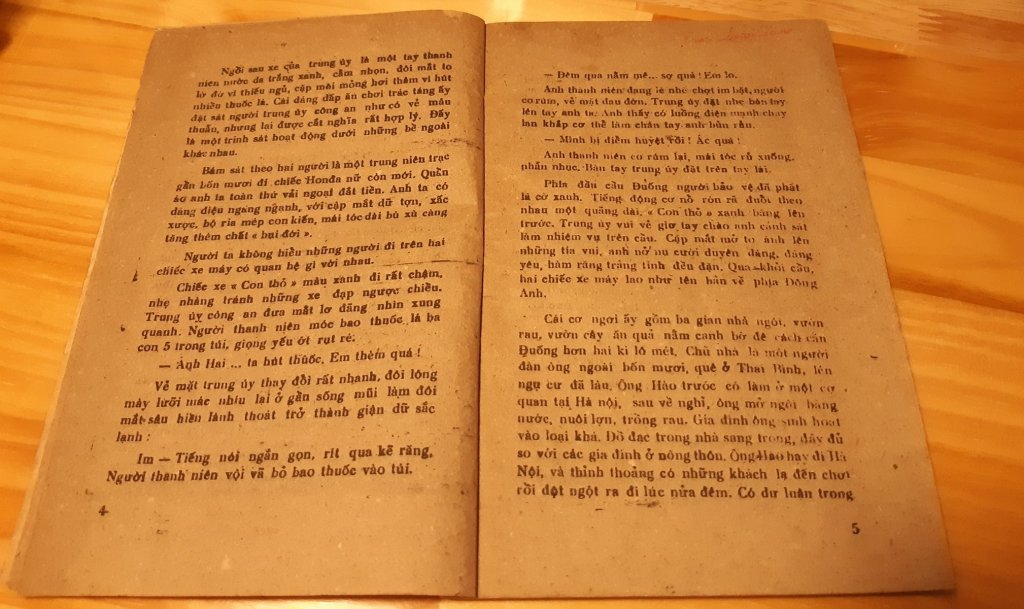 Ngồi sau xe của trung úy là một tay thanh
niên nước da trắng xanh, cằm nhọn, đôi mắt to
lờ đờ vì thiếu ngủ, cặp môi mỏng hơi thâm vì hút
nhiều thuốc lá. Cái dáng dấp ăn chơi trác táng ấy
đặt sát người trung úy công an như có vẻ mâu
thuẫn, nhưng lại được cắt nghĩa rất hợp lý. Đấy
là một trinh sát hoạt động dưới những bề ngoài
khác nhau.
Bám sát theo hai người là một trung niên trạc
gần bốn mươi đi chiếc Honda nữ còn mới. Quần
áo anh ta toàn thứ vải ngoại đắt tiền. Anh ta có
dáng điệu ngang ngạnh, với cặp mắt dữ tợn, xấc
xược, bộ ria mép con kiến, mái tóc dài bù xù càng
tăng thêm chất « bụi đời ».
Người ta không hiểu những người đi trên hai
chiếc xe máy có quan hệ gì với nhau.
Chiếc xe « Con thỏ » màu xanh đi rất chậm,
nhẹ nhàng tránh những xe đạp ngược chiều.
Trung úy công an đưa mắt lơ đãng nhìn xung
quanh. Người thanh niên móc bao thuốc lá ba
con 5 trong túi, giọng yếu ớt rụt rè.
— Anh Hai ... ta hút thuốc. Em thèm quá !
Vẻ mặt trung úy thay đổi rất nhanh, đôi lông
mày lưỡi mác nhíu lại ở gần sống mũi làm đôi
mắt sâu hiền lành thoắt trở thành giận dữ sắc
lạnh :
Im — Tiếng nói ngắn gọn, rít qua kẽ răng.
Người thanh niên vội vã bỏ bao thuốc vào túi.
4
— Đêm qua nằm mê... sợ quá ! Em lo.
Anh thanh niên đang lè nhè chợt im bặt, người
co rúm, vẻ mặt đau đớn. Trung úy đặt nhẹ bàn tay
lên tay anh ta. Anh thấy có luồng điện mạnh chạy
lan khắp cơ thể làm chân tay anh bủn rủn.
— Mình bị điểm huyệt rồi ! Ác quá !
Anh thanh niên co rúm lại, mái tóc rũ xuống,
nhẫn nhục. Bàn tay trung úy đặt trên tay lái.
Phía đầu cầu Đuống người bảo vệ đã phất
lá cờ xanh. Tiếng động cơ nổ ròn rã đuổi theo
nhau một quãng dài. « Con thỏ » xanh băng lên
trước. Trung úy vui vẻ giơ tay chào anh cảnh sát
làm nhiệm vụ trên cầu. Cặp mắt mở to ánh lên
những tia vui, anh nở nụ cười duyên dáng, đáng
yêu, hàm răng trắng tinh đều đặn. Qua khỏi cầu,
hai chiếc xe máy lao như tên bắn về phía Đông
Anh.
Cái cơ ngơi ấy gồm ba gian nhà ngói, vườn
rau, vườn cây ăn quả nằm cạnh bờ đê cách cầu
Đuống hơn hai ki lô mét. Chủ nhà là một người
đàn ông ngoài bốn mươi, quê ở Thái Bình, lên
ngụ cư đã lâu. Ông Hào trước có làm ở một cơ
quan tại Hà nội, sau về nghỉ, ông mở ngôi hàng
nước, nuôi lợn, trồng rau. Gia đình ông sinh hoạt
vào loại khá. Đồ đạc trong nhà sang trọng, đầy đủ
so với các gia đình ở nông thôn. Ông Hào hay đi Hà
Nội, và thỉnh thoảng có những khách lạ đến chơi
rồi đột ngột ra đi lúc nửa đêm. Có dư luận trong
5